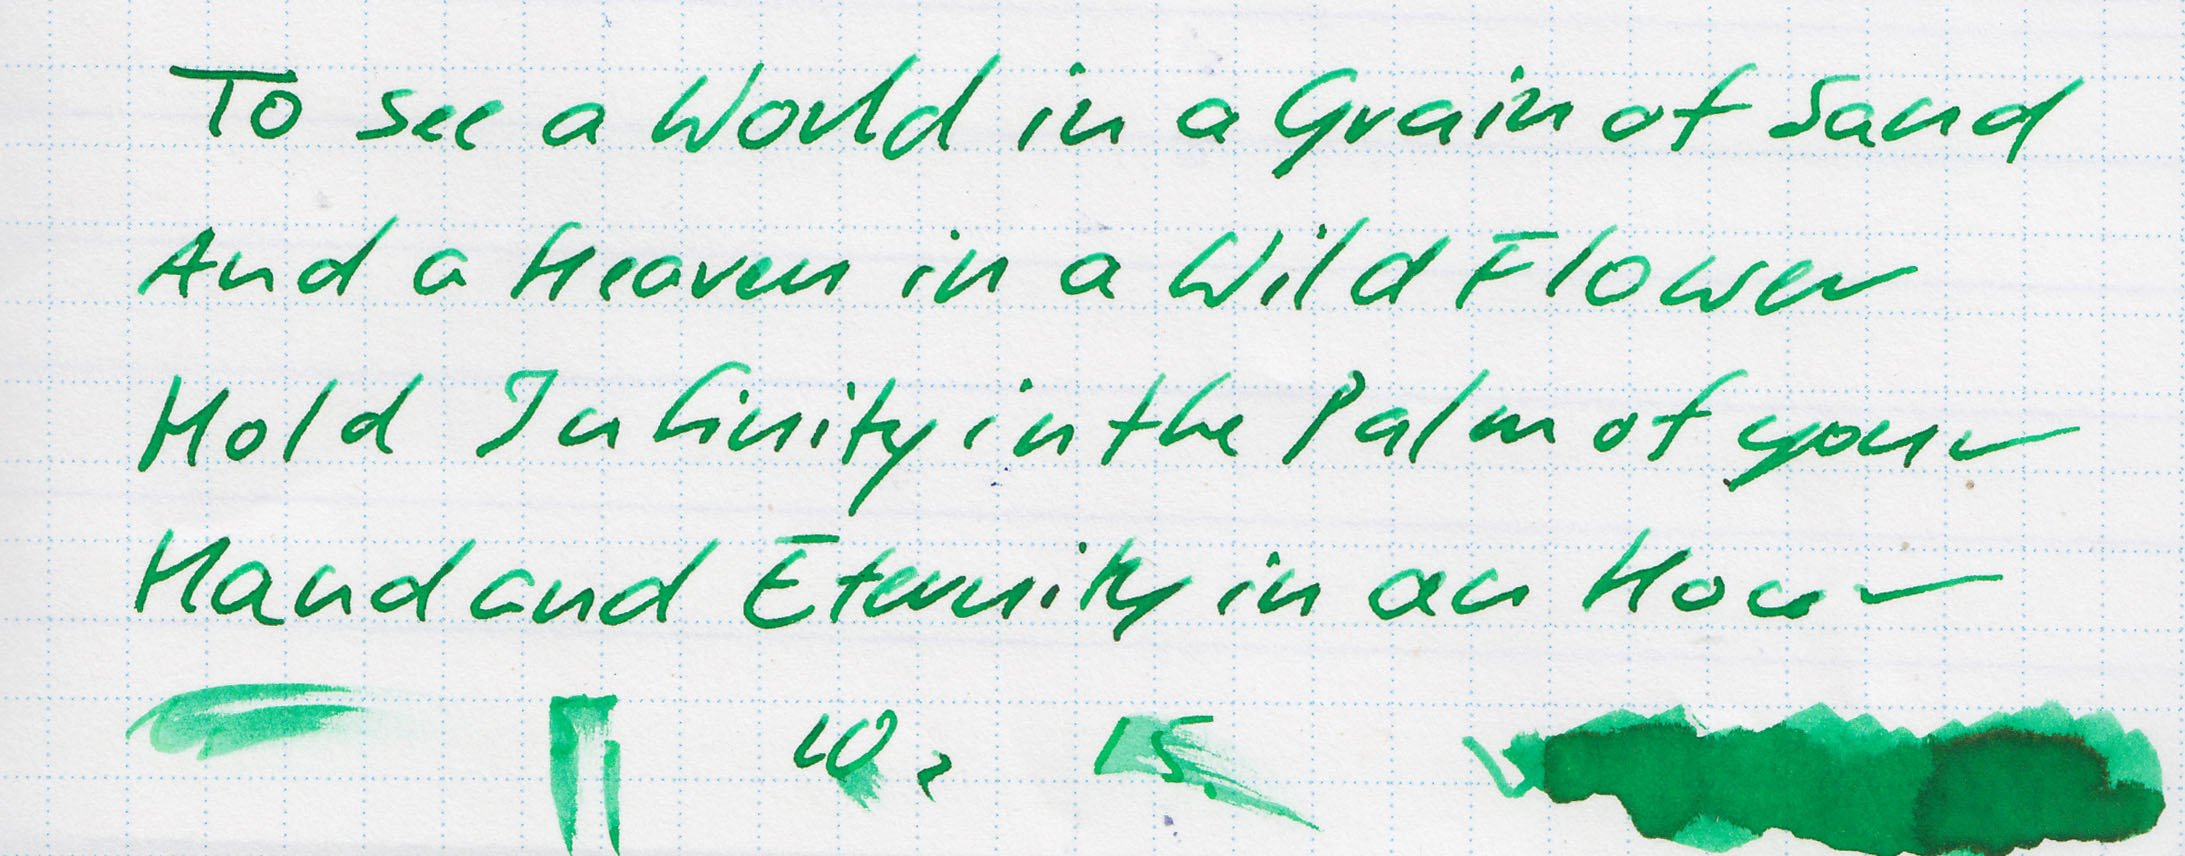 To see a World in a Grain of Sand
And a Heaven in a Wild Flower
Hold Infinity in the Palm of your
Hand and Eternity in an Hour
10 s 15